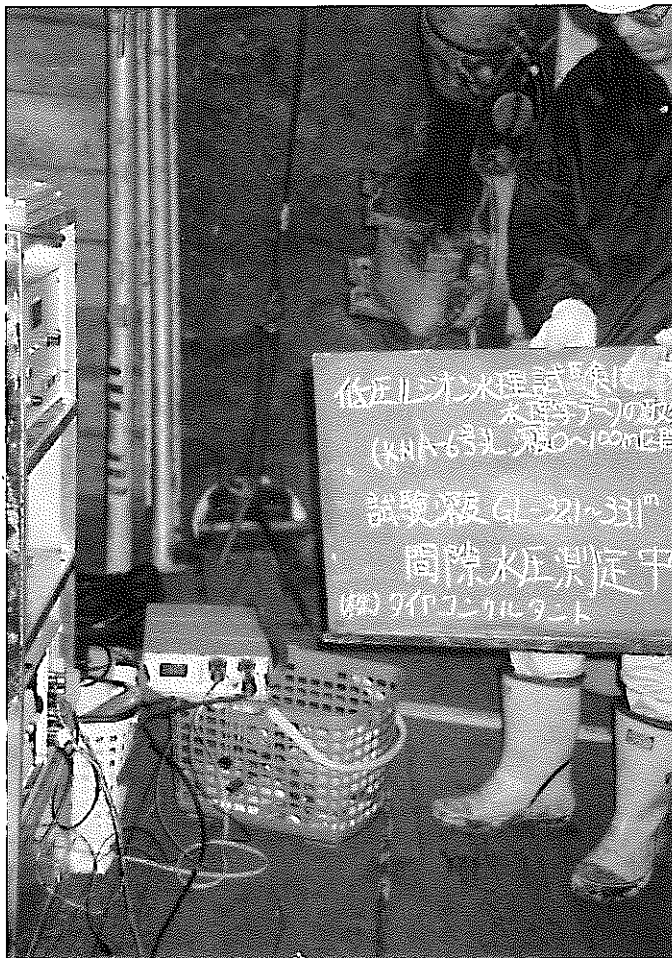 低圧ルジオン水理試験に
水理学データの取
(KNA-6号孔 深度0~100m区間
試験深度 GL-32.1~33.1m
間隙水圧測定中
(株)ダイヤコンサルタント